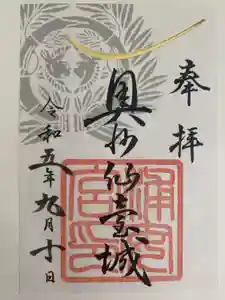 奉拝
奥州仙臺城
令和五年九月十日